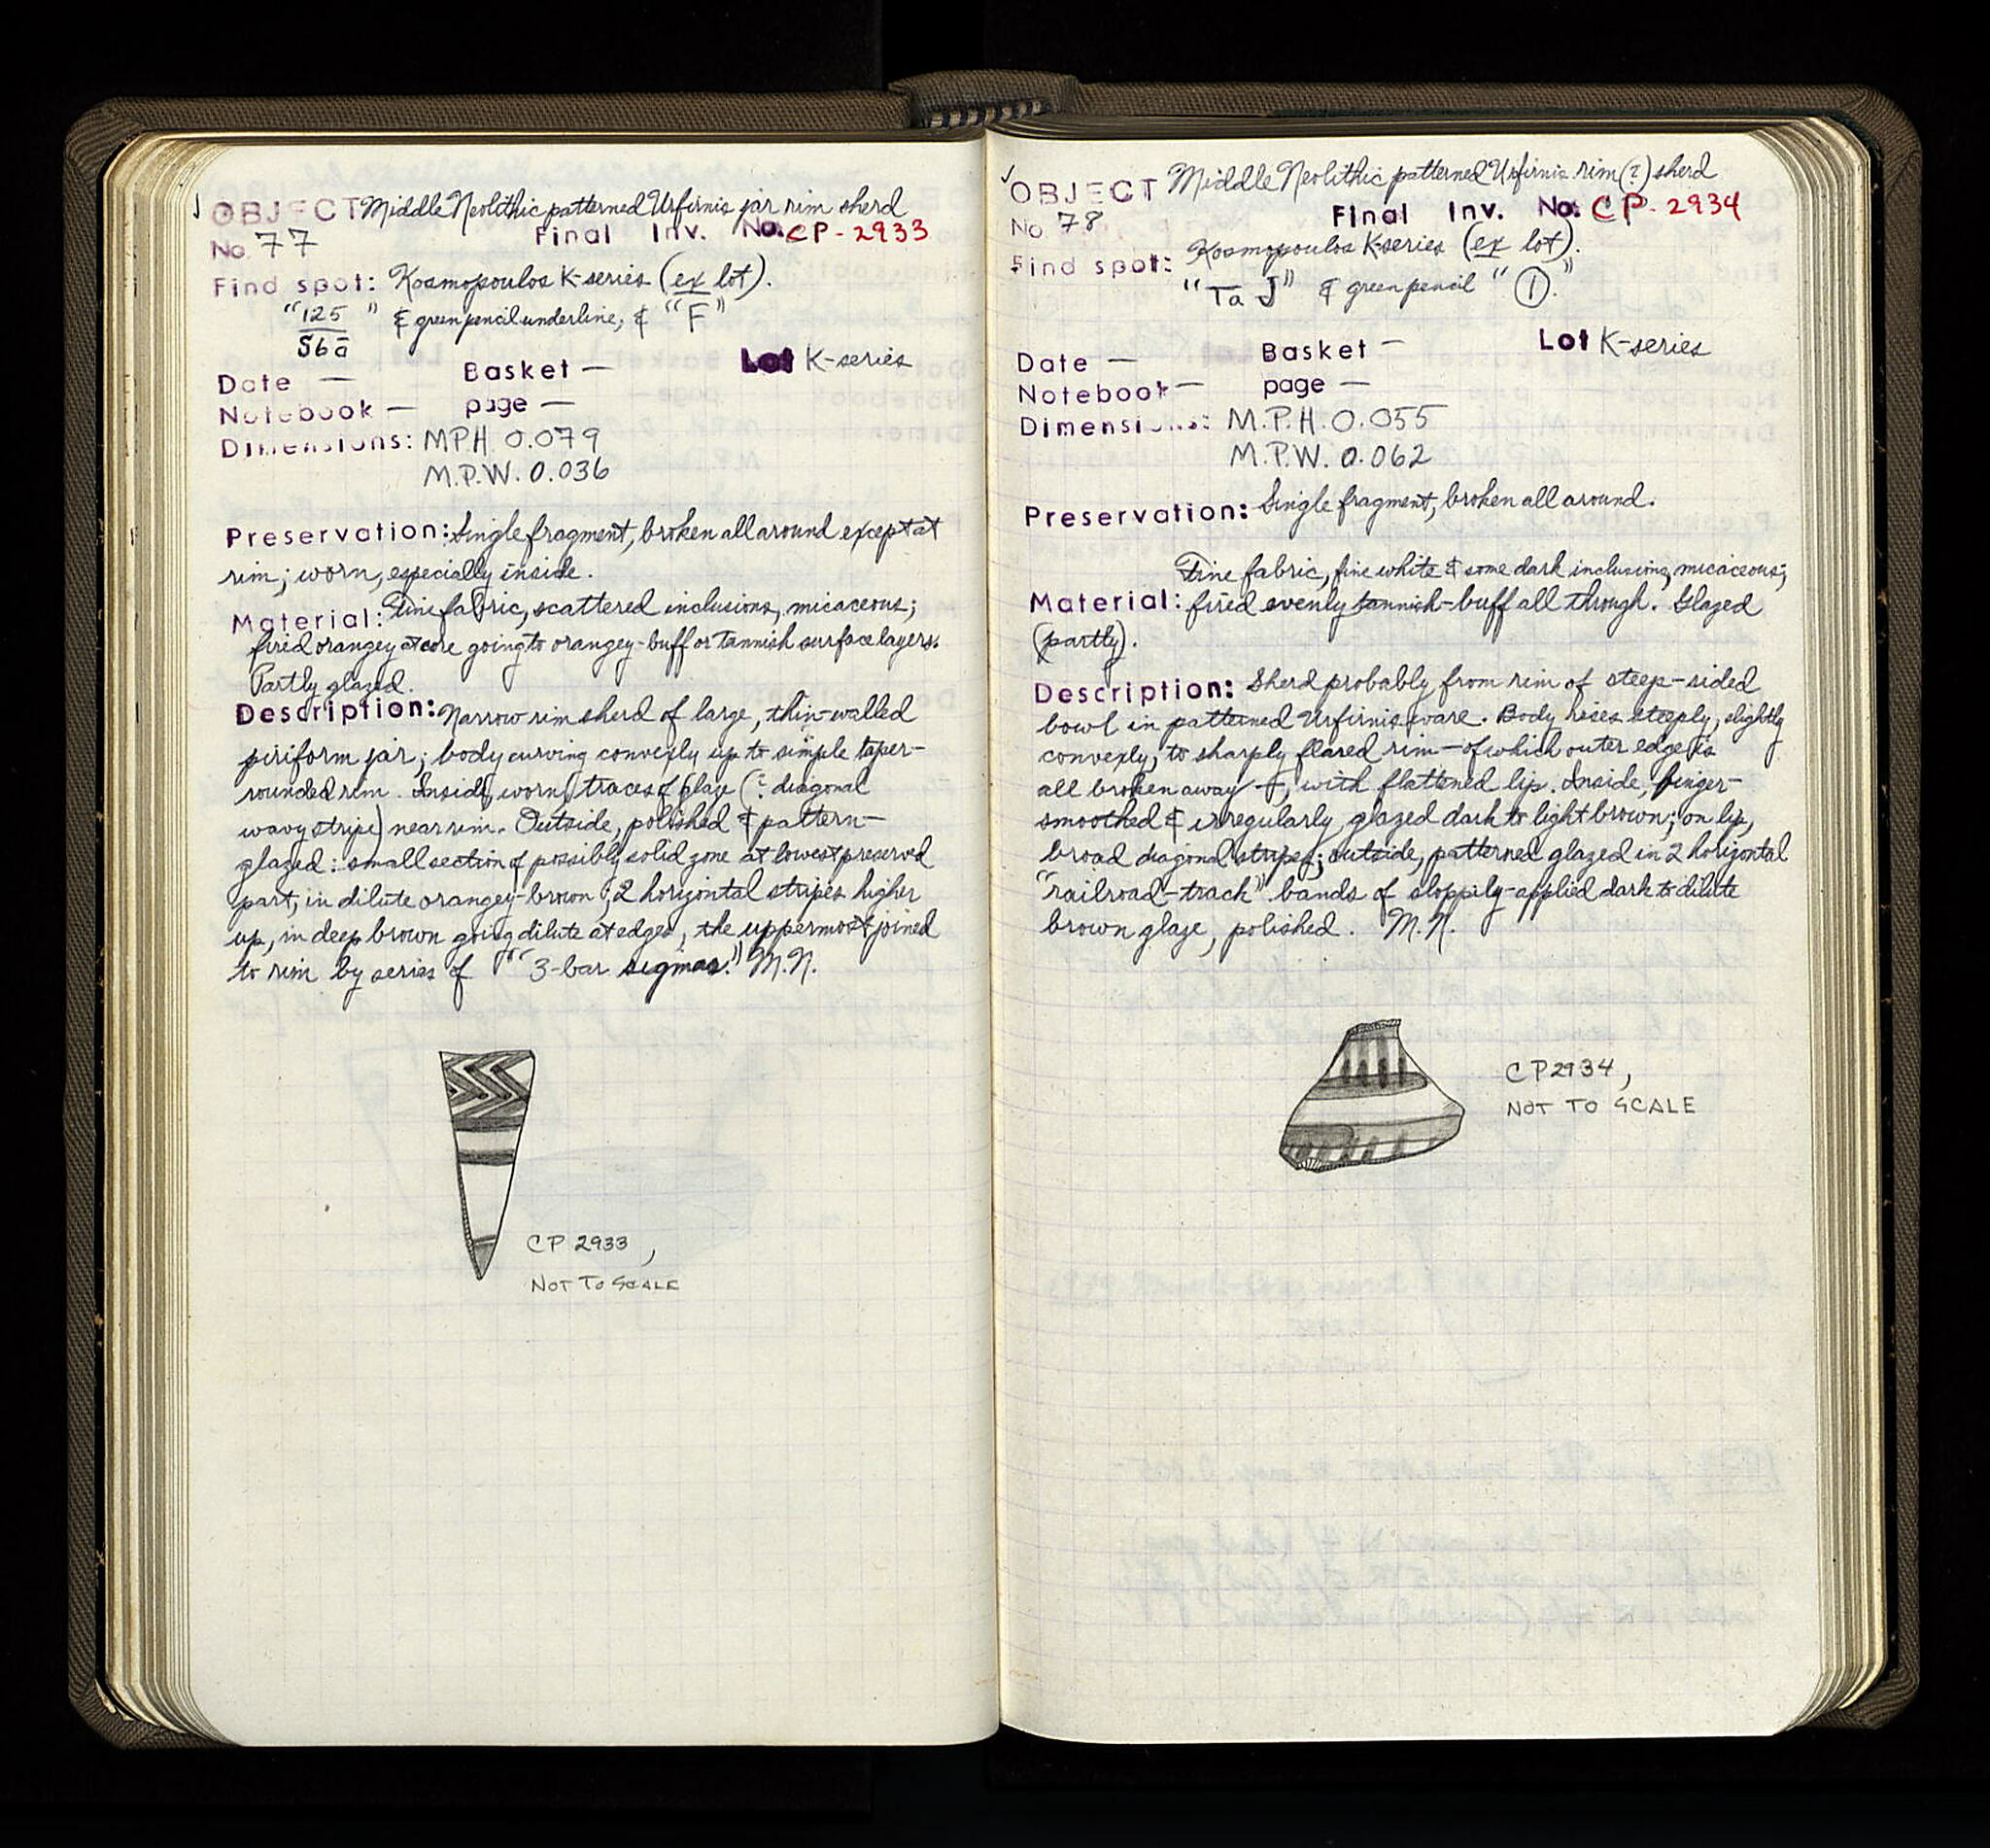 ✓ OBJECT Middle Neolithic patterned Urfirnis jar rim sherd
No. 77 Final Inv. No. CP-2933
Find spot: Kosmopoulos K-series (ex lot).
"125 " & green pencil underline; & "F"
56ā
Lot K-series
Date — Basket —
Notebook — page —
Dimensions: MPH 0.079
M.P.W. 0.036
Preservation: Single fragment, broken all around except at
rim; worn, especially inside.
Material: Fine fabric, scattered inclusions, micaceous;
fired orangey at core going to orangey-buff or tannish surface layers.
Partly glazed.
Description: Narrow rim sherd of large, thin-walled
piriform jar; body curving convexly up to simple taper-
rounded rim. Inside, worn, traces of glaze (? diagonal
wavy stripe) near rim. Outside, polished & pattern-
glazed: small section of possibly solid zone at lowest preserved
part, in dilute orangey-brown; 2 horizontal stripes higher
up, in deep brown going dilute at edges, the uppermost joined
to rim by series of "3-bar sigmas." M.N.
CP 2933,
NOT TO SCALE
✓ OBJECT Middle Neolithic patterned Urfirnis rim (?) sherd
No. 78 Final Inv. No. CP-2934
Find spot: Kosmopoulos K-series (ex lot).
"Ta J" & green pencil "①."
Lot K-series
Date — Basket —
Notebook — page —
Dimensions: M.P.H. 0.055
M.P.W. 0.062
Preservation: Single fragment, broken all around.
Fine fabric, fine white & some dark inclusions, micaceous;
Material: fired evenly tannish-buff all through. Glazed
(partly).
Description: Sherd probably from rim of steep-sided
bowl in patterned Urfirnis ware. Body rises steeply, slightly
convexly, to sharply flared rim — of which outer edge is
all broken away —, with flattened lip. Inside, finger-
smoothed & irregularly glazed dark to light brown; on lip,
broad diagonal stripes; outside, patterned glazed in 2 horizontal
"railroad-track" bands of sloppily-applied dark to dilute
brown glaze, polished. M.N.
CP 2934,
NOT TO SCALE